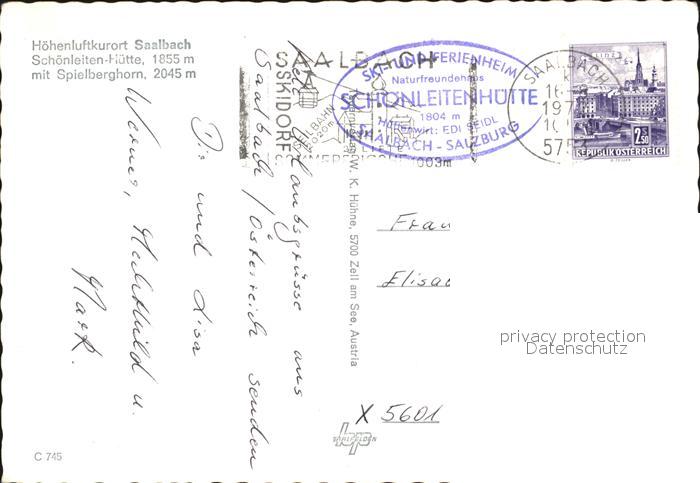 Höhenluftkurort Saalbach
Schönleiten-Hütte, 1855 m
mit Spielberghorn, 2045 m
SAALBACH
SKIDORF
SEILBAHN
2020m
003m
SKI- UND FERIENHEIM
Naturfreundehaus
SCHÖNLEITENHÜTTE
1804 m
Hüttenwirt: EDI SEIDL
SAALBACH - SALZBURG
SAALBACH
16.
197
10
575
LINZ
2.50
REPUBLIK ÖSTERREICH
Urlaubsgrüsse aus
Saalbach / Österreich senden
Dir und Lisa
Werner, Mechthild u.
Mark.
W. K. Hühne, 5700 Zell am See, Austria
Frau
Elisa
X 5601
SAALFELDEN
privacy protection
Datenschutz
C 745